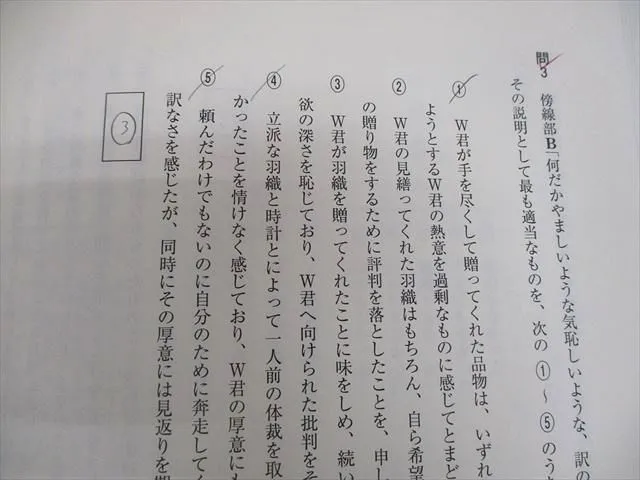 問3 傍線部B「何だかやましいような気恥しいような、訳の
その説明として最も適当なものを、次の①～⑤のう
① W君が手を尽くして贈ってくれた品物は、いずれ
ようとするW君の熱意を過剰なものに感じてとまど
② W君の見繕ってくれた羽織はもちろん、自ら希望
の贈り物をするために評判を落としたことを、申し
③ W君が羽織を贈ってくれたことに味をしめ、続い
欲の深さを恥じており、W君へ向けられた批判をそ
④ 立派な羽織と時計とによって一人前の体裁を取
かったことを情けなく感じており、W君の厚意にも
⑤ 頼んだわけでもないのに自分のために奔走してく
訳なさを感じたが、同時にその厚意には見返りを期
③